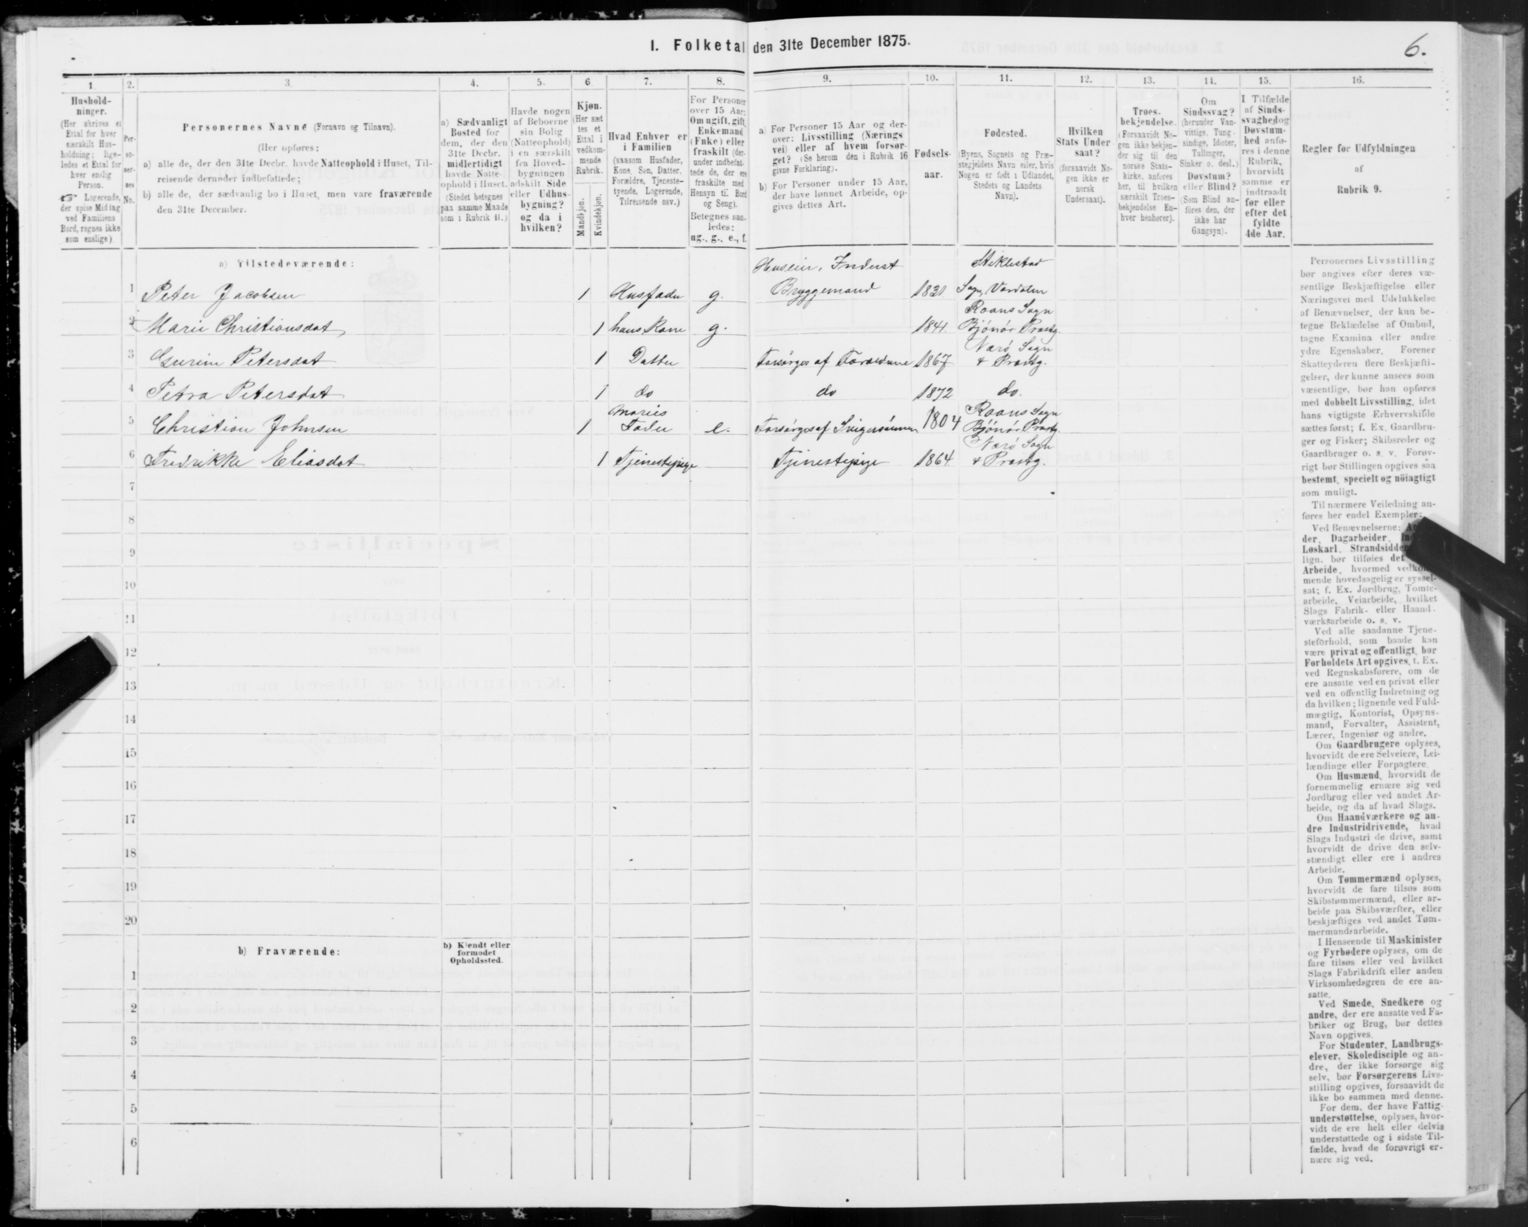 I. Folketal den 31te December 1875.
6.
1.
Husholdninger.
(Her skrives et
Ettal for hver
særskilt Husholdning; ligeledes et Ettal for
hver enslig
Person.
☞ Logerende,
der spise Middag
ved Familiens
Bord, regnes ikke
som enslige.)
2.
Personernes
No.
3.
Personernes Navne (Fornavn og Tilnavn).
(Her opføres:
a) alle de, der den 31te Decbr. havde Natteophold i Huset, Tilreisende derunder indbefattede;
b) alle de, der sædvanlig bo i Huset, men vare fraværende
den 31te December.
4.
a) Sædvanligt
Bosted for
dem, der den
31te Decbr.
midlertidigt
havde Natteophold i Huset.
(Stedet betegnes
paa samme Maade
som i Rubrik 11.)
5.
Havde nogen
af Beboerne
sin Bolig
(Natteophold)
i en særskilt
fra Hovedbygningen
adskilt Side
eller Udhusbygning?
og da i
hvilken?
6.
Kjøn.
(Her sættes et
Ettal i
vedkommende
Rubrik.
Mandkjøn.
Kvindekjøn.
7.
Hvad Enhver er
i Familien
(saasom Husfader,
Kone, Søn, Datter,
Forældre, Tjenestetyende, Logerende,
Tilreisende osv.)
8.
For Personer
over 15 Aar:
Om ugift, gift,
Enkemand
(Enke) eller
fraskilt (derunder indbefattede de, der ere
fraskilte med
Hensyn til Bord
og Seng).
Betegnes saaledes:
ug., g., e., f.
9.
a) For Personer 15 Aar og derover: Livsstilling (Næringsvei) eller af hvem forsørget? (Se herom den i Rubrik 16
givne Forklaring).
b) For Personer under 15 Aar,
der have lønnet Arbeide, opgives dettes Art.
10.
Fødselsaar.
11.
Fødested.
(Byens, Sognets og Præstegjeldets Navn eller, hvis
Nogen er født i Udlandet,
Stedets og Landets
Navn).
12.
Hvilken
Stats Undersaat?
(forsaavidt Nogen ikke er
norsk
Undersaat).
13.
Troesbekjendelse.
(Forsaavidt Nogen ikke bekjender sig til den
norske Statskirke, anføres
her, til hvilken
særskilt Troesbekjendelse Enhver henhører).
14.
Om
Sindssvag?
(herunder Vanvittige, Tungsindige, Idioter,
Tullinger,
Sinker o. desl.)
Døvstum?
eller Blind?
(Som Blind anføres den, der
ikke har
Gangsyn).
15.
I Tilfælde
af Sindssvaghed og
Døvstumhed anføres i denne
Rubrik,
hvorvidt
samme er
indtraadt
før eller
efter det
fyldte
4de Aar.
16.
Regler for Udfyldningen
af
Rubrik 9.
a) Tilstedeværende:
1 Peter Jacobsen 1 Husfader g. Husein. Inderst Bryggemand 1821 Stiklestad Sogn, Værdalen
2 Marie Christiansdat 1 hans Kone g. 1841 Roans Sogn Bjönör Præstg.
3 Gurine Petersdat 1 Datter Forsörges af Forældrene 1867 Nærö Sogn & Præstg.
4 Petra Petersdat 1 do do 1872 do.
5 Christian Johnsen 1 Maries Fader e. Forsörges af Svigersönnen 1804 Roans Sogn Bjönör Præstg
6 Fredrikke Eliasdat 1 Tjenestepige Tjenestepige 1864 Nærö Sogn & Præstg.
7
8
9
10
11
12
13
14
15
16
17
18
19
20
b) Fraværende:
b) Kjendt eller
formodet
Opholdssted.
1
2
3
4
5
6
Personernes Livsstilling
bør angives efter deres væsentlige Beskjæftigelse eller
Næringsvei med Udelukkelse
af Benævnelser, der kun betegne Beklædelse af Ombud,
tagne Examina eller andre
ydre Egenskaber. Forener
Skatteyderen flere Beskjæftigelser, der kunne ansees som
væsentlige, bør han opføres
med dobbelt Livsstilling, idet
hans vigtigste Erhvervskilde
sættes først; f. Ex. Gaardbruger og Fisker; Skibsreder og
Gaardbruger o. s. v. Forøvrigt bør Stillingen opgives saa
bestemt, specielt og nöiagtigt
som muligt.
Til nærmere Veiledning anføres her endel Exempler:
Ved Benævnelserne:
der, Dagarbeider,
Løskarl, Strandsidder
lign. bør tilføies det
Arbeide, hvormed vedkommende hovedsagelig er sysselsat; f. Ex. Jordbrug, Tomtearbeide, Veiarbeide, hvilket
Slags Fabrik- eller Haandværksarbeide o. s. v.
Ved alle saadanne Tjenesteforhold, som baade kan
være privat og offentligt, bør
Forholdets Art opgives, f. Ex.
ved Regnskabsførere, om de
ere ansatte ved en privat eller
ved en offentlig Indretning og
da hvilken; lignende ved Fuldmægtig, Kontorist, Opsynsmand, Forvalter, Assistent,
Lærer, Ingeniør og andre.
Om Gaardbrugere oplyses,
hvorvidt de ere Selveiere, Leilændinge eller Forpagtere.
Om Husmænd, hvorvidt de
fornemmelig ernære sig ved
Jordbrug eller ved andet Arbeide, og da af hvad Slags.
Om Haandværkere og andre Industridrivende, hvad
Slags Industri de drive, samt
hvorvidt de drive den selvstændigt eller ere i andres
Arbeide.
Om Tømmermænd oplyses,
hvorvidt de fare tilsøs som
Skibstømmermænd, eller arbeide paa Skibsværfter, eller
beskjæftiges ved andet Tømmermandsarbeide.
I Henseende til Maskinister
og Fyrbødere oplyses, om de
fare tilsøs eller ved hvilket
Slags Fabrikdrift eller anden
Virksomhedsgren de ere ansatte.
Ved Smede, Snedkere og
andre, der ere ansatte ved Fabriker og Brug, bør dettes
Navn opgives.
For Studenter, Landbrugselever, Skoledisciple og andre, der ikke forsørge sig
selv, bør Forsørgerens Livsstilling opgives, forsaavidt de
ikke bo sammen med denne.
For dem, der have Fattigunderstøttelse, oplyses, hvorvidt de ere helt eller delvis
understøttede og i sidste Tilfælde, hvad de forøvrigt ernære sig ved.